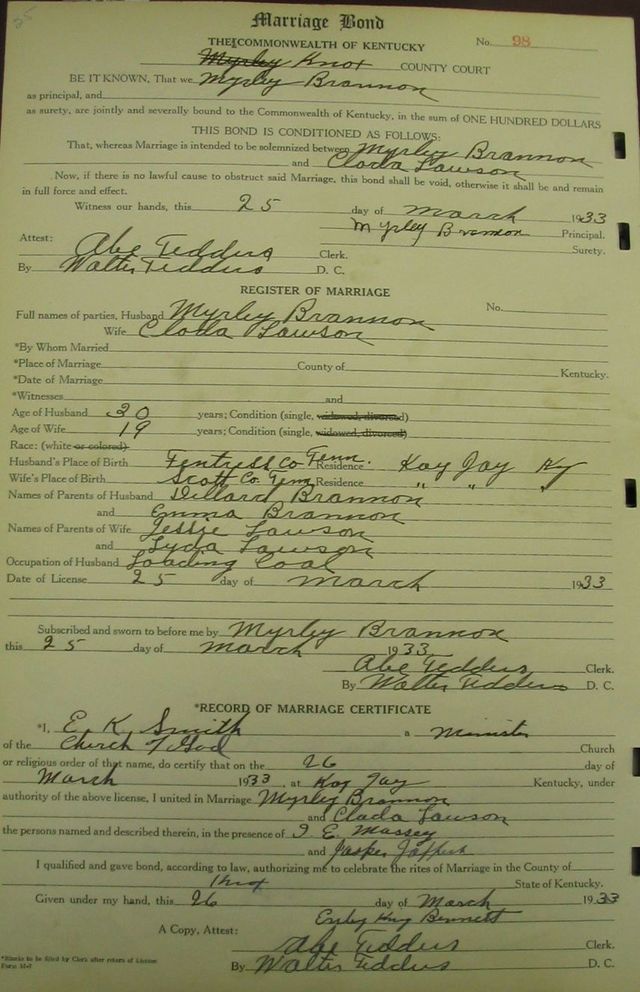 25
Marriage Bond
THE COMMONWEALTH OF KENTUCKY No. 98
Myrley Knox COUNTY COURT
BE IT KNOWN, That we Myrley Brannon
as principal, and
as surety, are jointly and severally bound to the Commonwealth of Kentucky, in the sum of ONE HUNDRED DOLLARS
THIS BOND IS CONDITIONED AS FOLLOWS:
That, whereas Marriage is intended to be solemnized between Myrley Brannon
and Cloda Lawson
Now, if there is no lawful cause to obstruct said Marriage, this bond shall be void, otherwise it shall be and remain
in full force and effect.
Witness our hands, this 25 day of March 1933
Myrley Brannon Principal.
Attest: Surety.
Abe Tedders Clerk.
By Walter Tedders D. C.
REGISTER OF MARRIAGE
Full names of parties, Husband Myrley Brannon No.
Wife Cloda Lawson
*By Whom Married
*Place of Marriage County of Kentucky.
*Date of Marriage
*Witnesses and
Age of Husband 30 years; Condition (single, widowed, divorced)
Age of Wife 19 years; Condition (single, widowed, divorced)
Race: (white or colored)
Husband's Place of Birth Fentress Co Tenn. Residence Kay Jay Ky
Wife's Place of Birth Scott Co. Tenn Residence " " "
Names of Parents of Husband Dillard Brannon
and Emma Brannon
Names of Parents of Wife Jessie Lawson
and Lyda Lawson
Occupation of Husband Loading Coal
Date of License 25 day of March 1933
Subscribed and sworn to before me by Myrley Brannon
this 25 day of March 1933
Abe Tedders Clerk.
By Walter Tedders D. C.
*RECORD OF MARRIAGE CERTIFICATE
*I, E K Smith a Minister
of the Church of God Church
or religious order of that name, do certify that on the 26 day of
March 1933, at Kay Jay Kentucky, under
authority of the above license, I united in Marriage Myrley Brannon
and Clada Lawson
the persons named and described therein, in the presence of I E. Massey
and Jasper
I qualified and gave bond, according to law, authorizing me to celebrate the rites of Marriage in the County of
Knox State of Kentucky.
Given under my hand, this 26 day of March 1933
King Bennett
A Copy, Attest:
Abe Tedders Clerk.
*Blanks to be filled by Clerk after return of License
Form M-7 By Walter Tedders D. C.